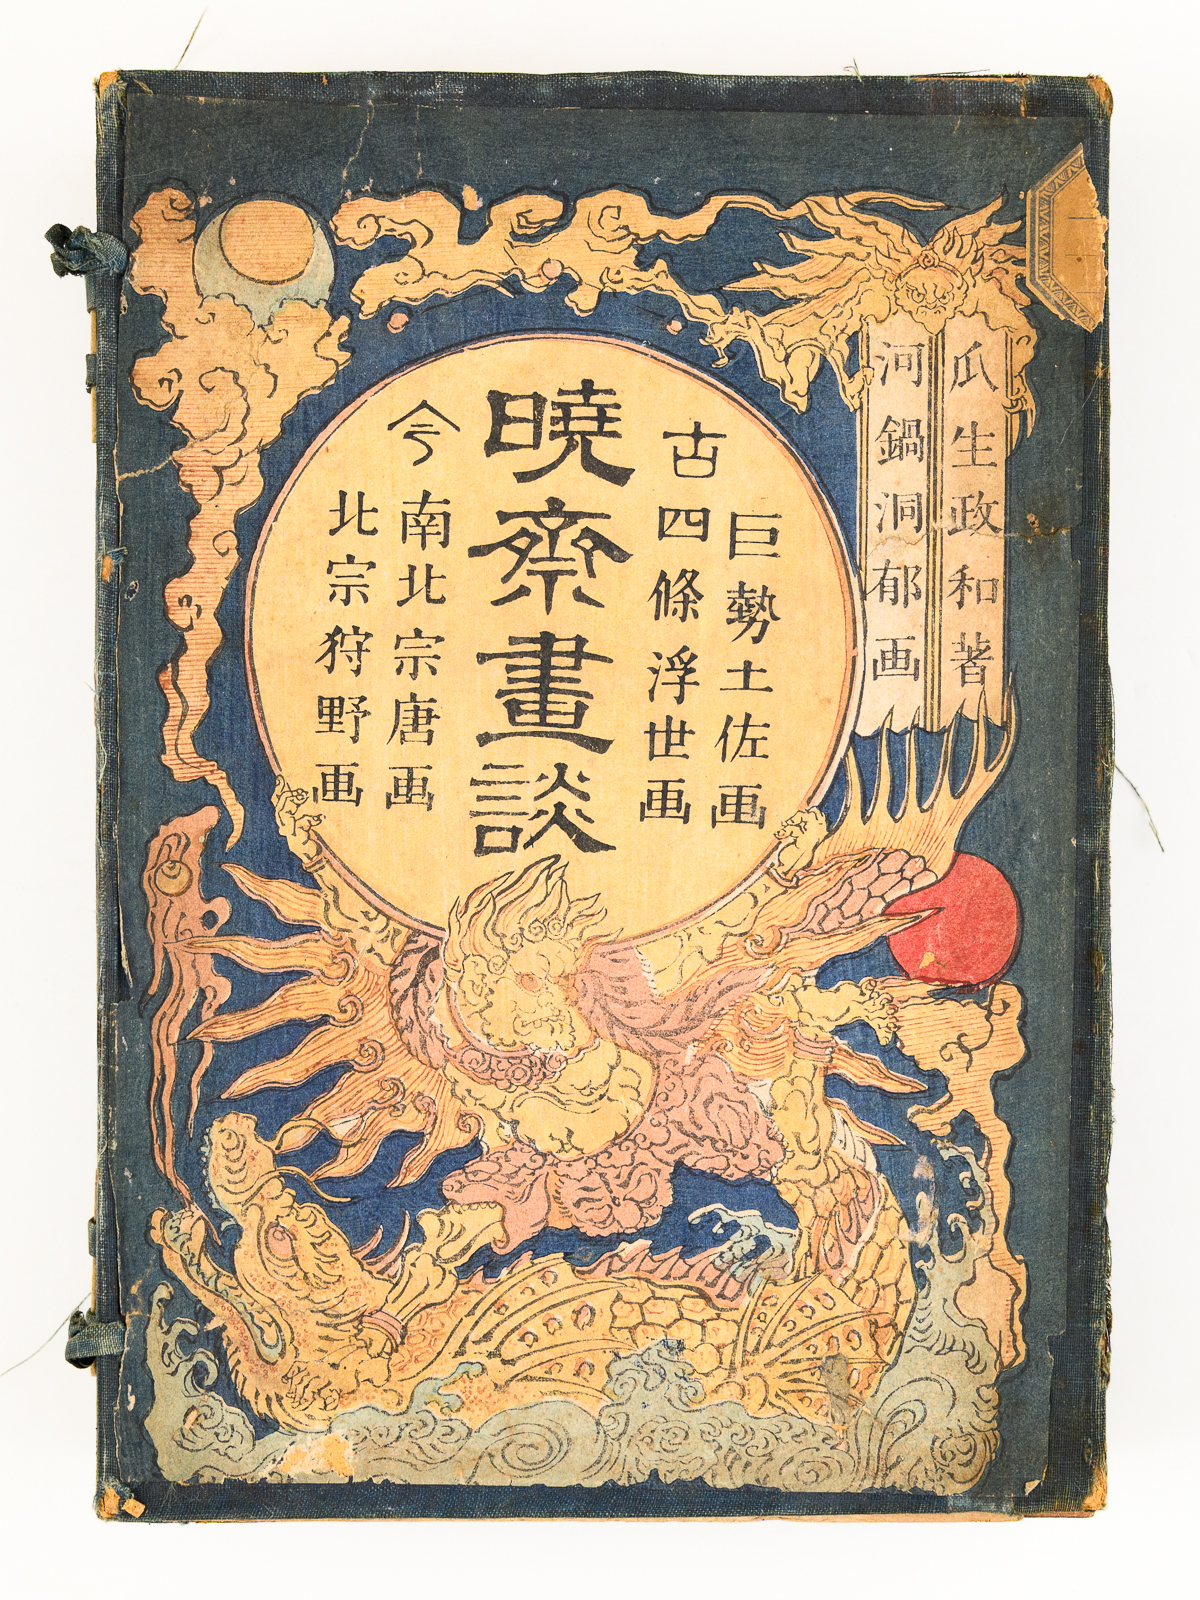 瓜生政和著
河鍋洞郁画
古
巨勢土佐画
四條浮世画
曉斎畫談
今
南北宗唐画
北宗狩野画